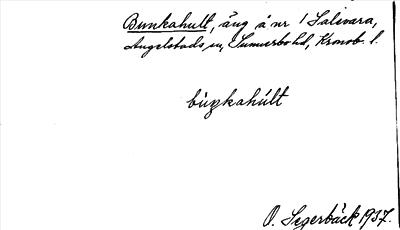 Bunkahult, äng å nr 1 Salivara,
Angelstads sn, Sunnerbo hd, Kronob. l.
bùŋkahúlt
O. Segerbäck 1937.